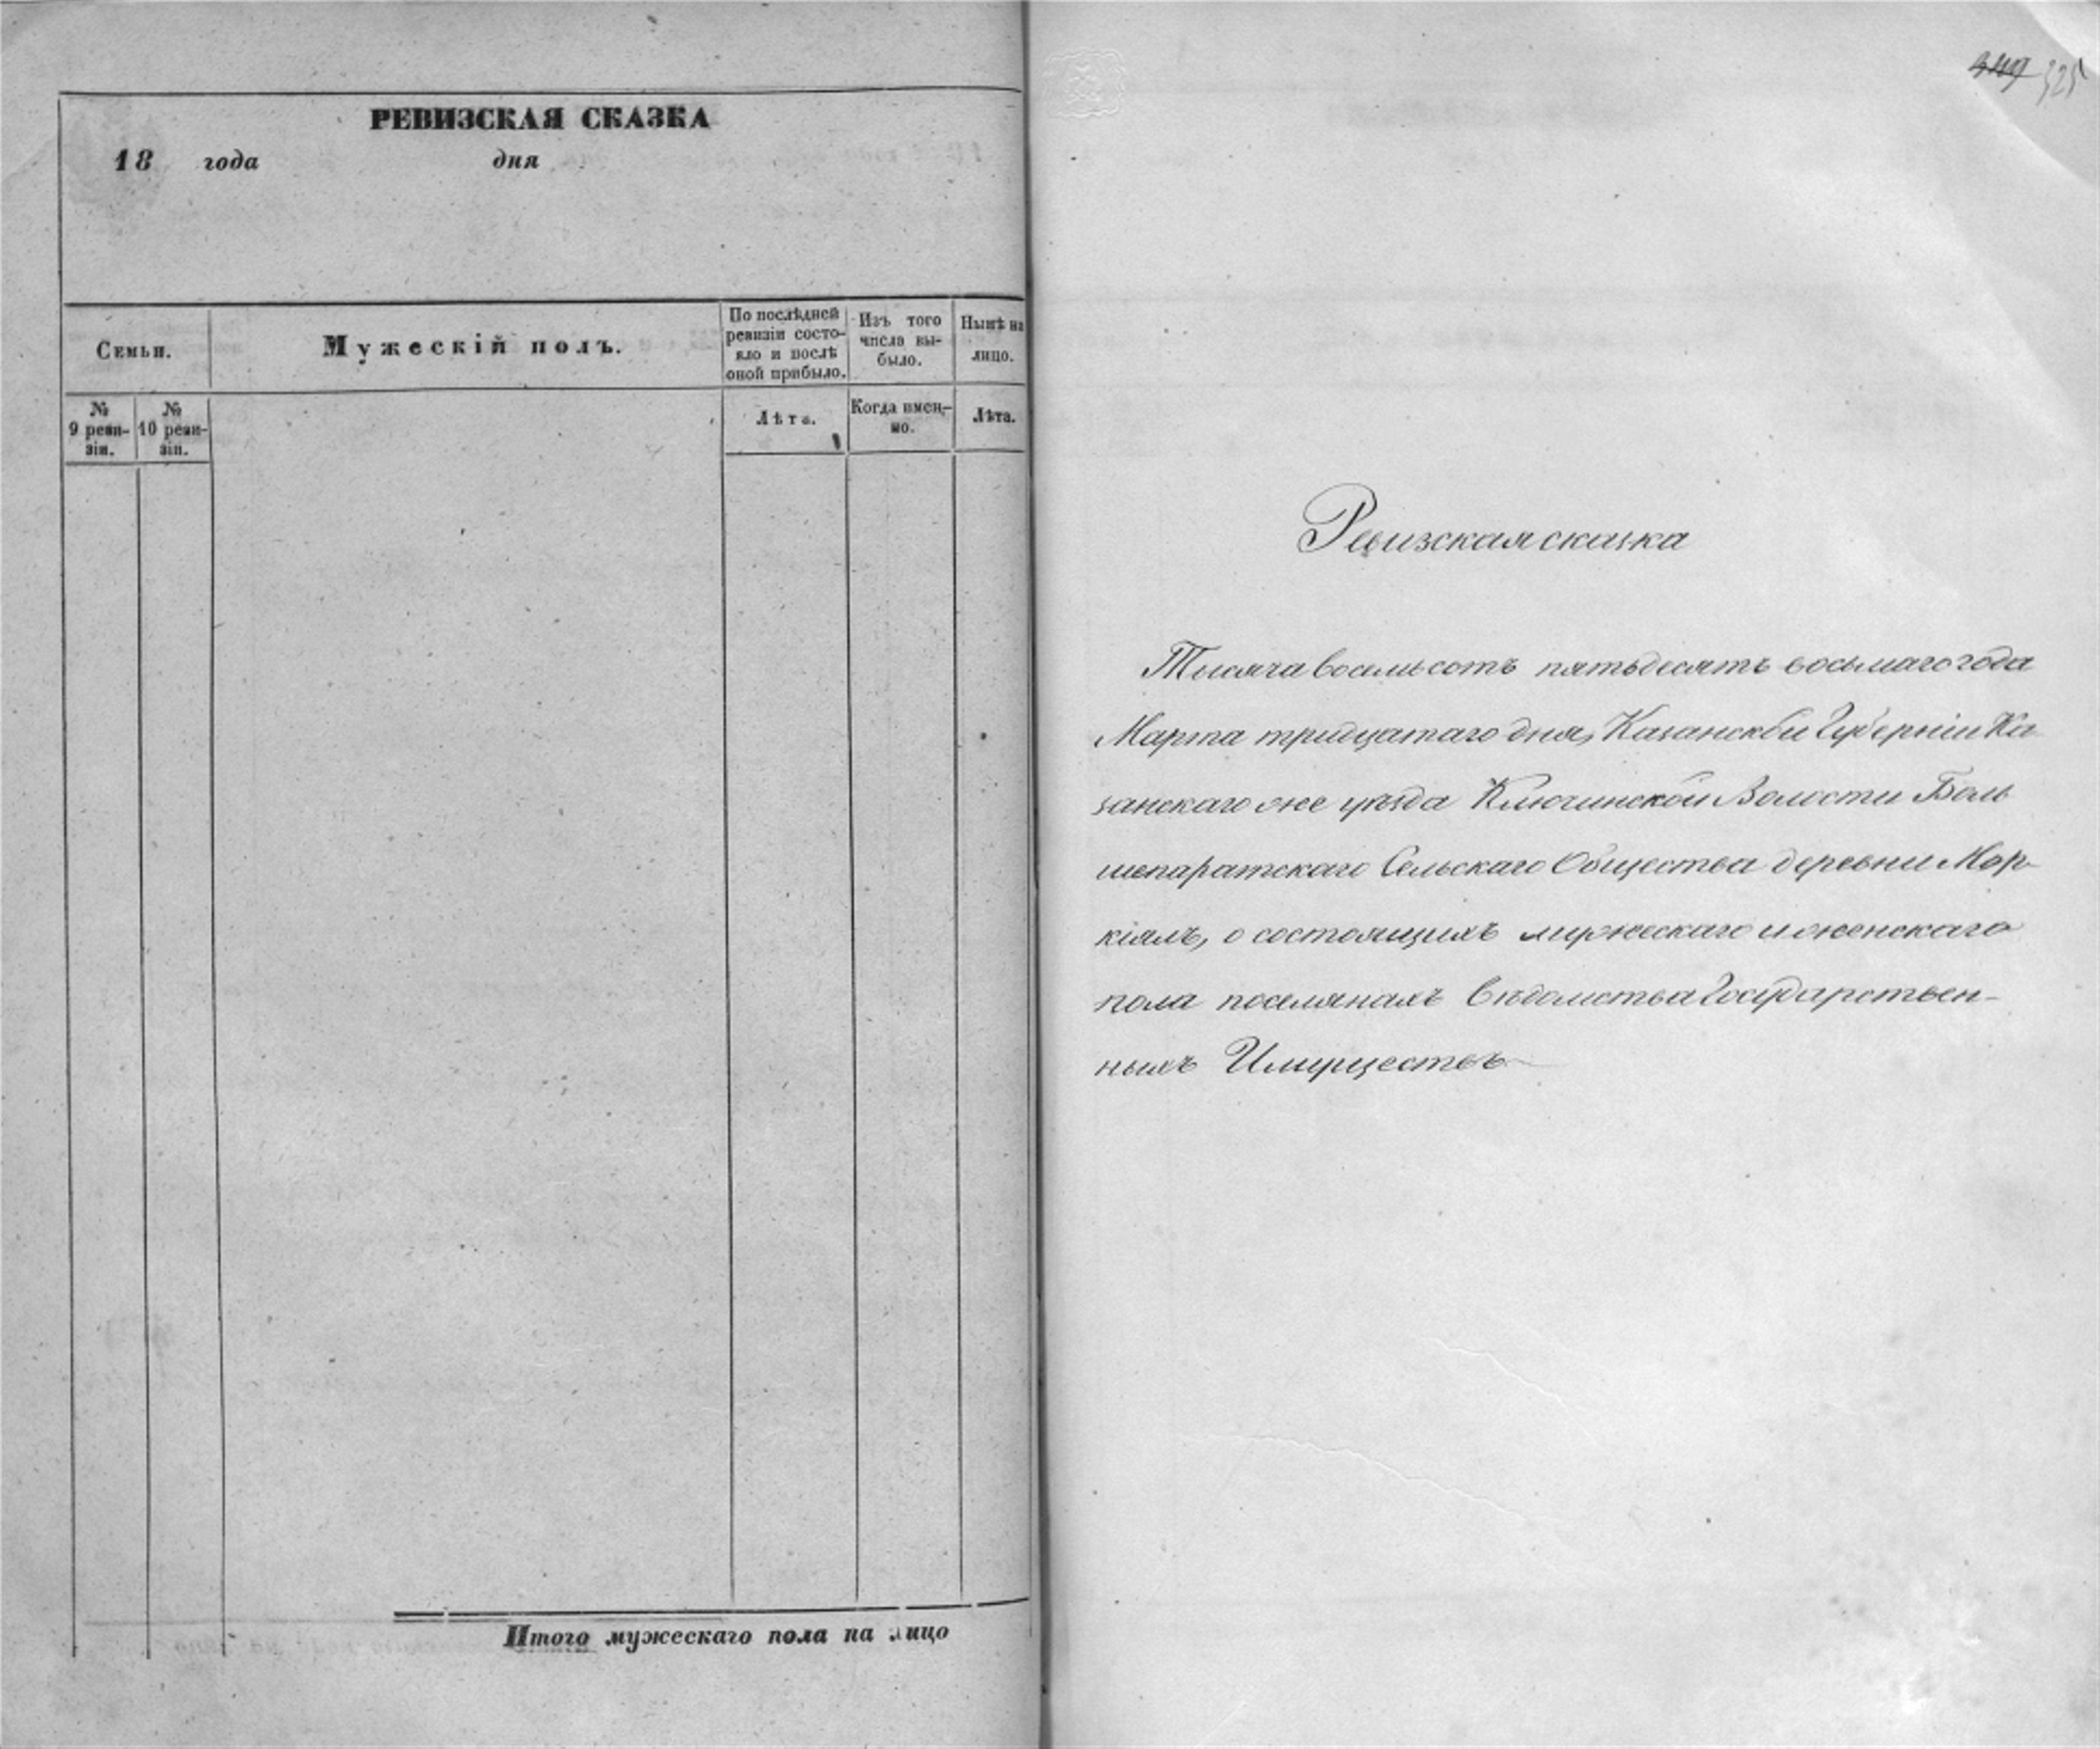 РЕВИЗСКАЯ СКАЗКА
18 года дня
Семьи.
Мужескій полъ.
По послѣдней
ревизіи состо-
яло и послѣ
оной прибыло.
Изъ того
числа вы-
было.
Нынѣ на
лицо.
№
9 реви-
зіи.
№
10 реви-
зіи.
Лѣта.
Когда имен-
но.
Лѣта.
Итого мужескаго пола на лицо
325
Ревизская сказка
Тысяча восемьсотъ пятьдесятъ восьмаго года
Марта тридцатаго дня, Казанской Губерніи Ка
занскаго же уѣзда Ключинской Волости Боль
шепаратскаго Сельскаго Общества деревни Мор-
кіялъ, о состоящихъ мужескаго и женскаго
пола поселянахъ вѣдомства Государствен-
ныхъ Имуществъ